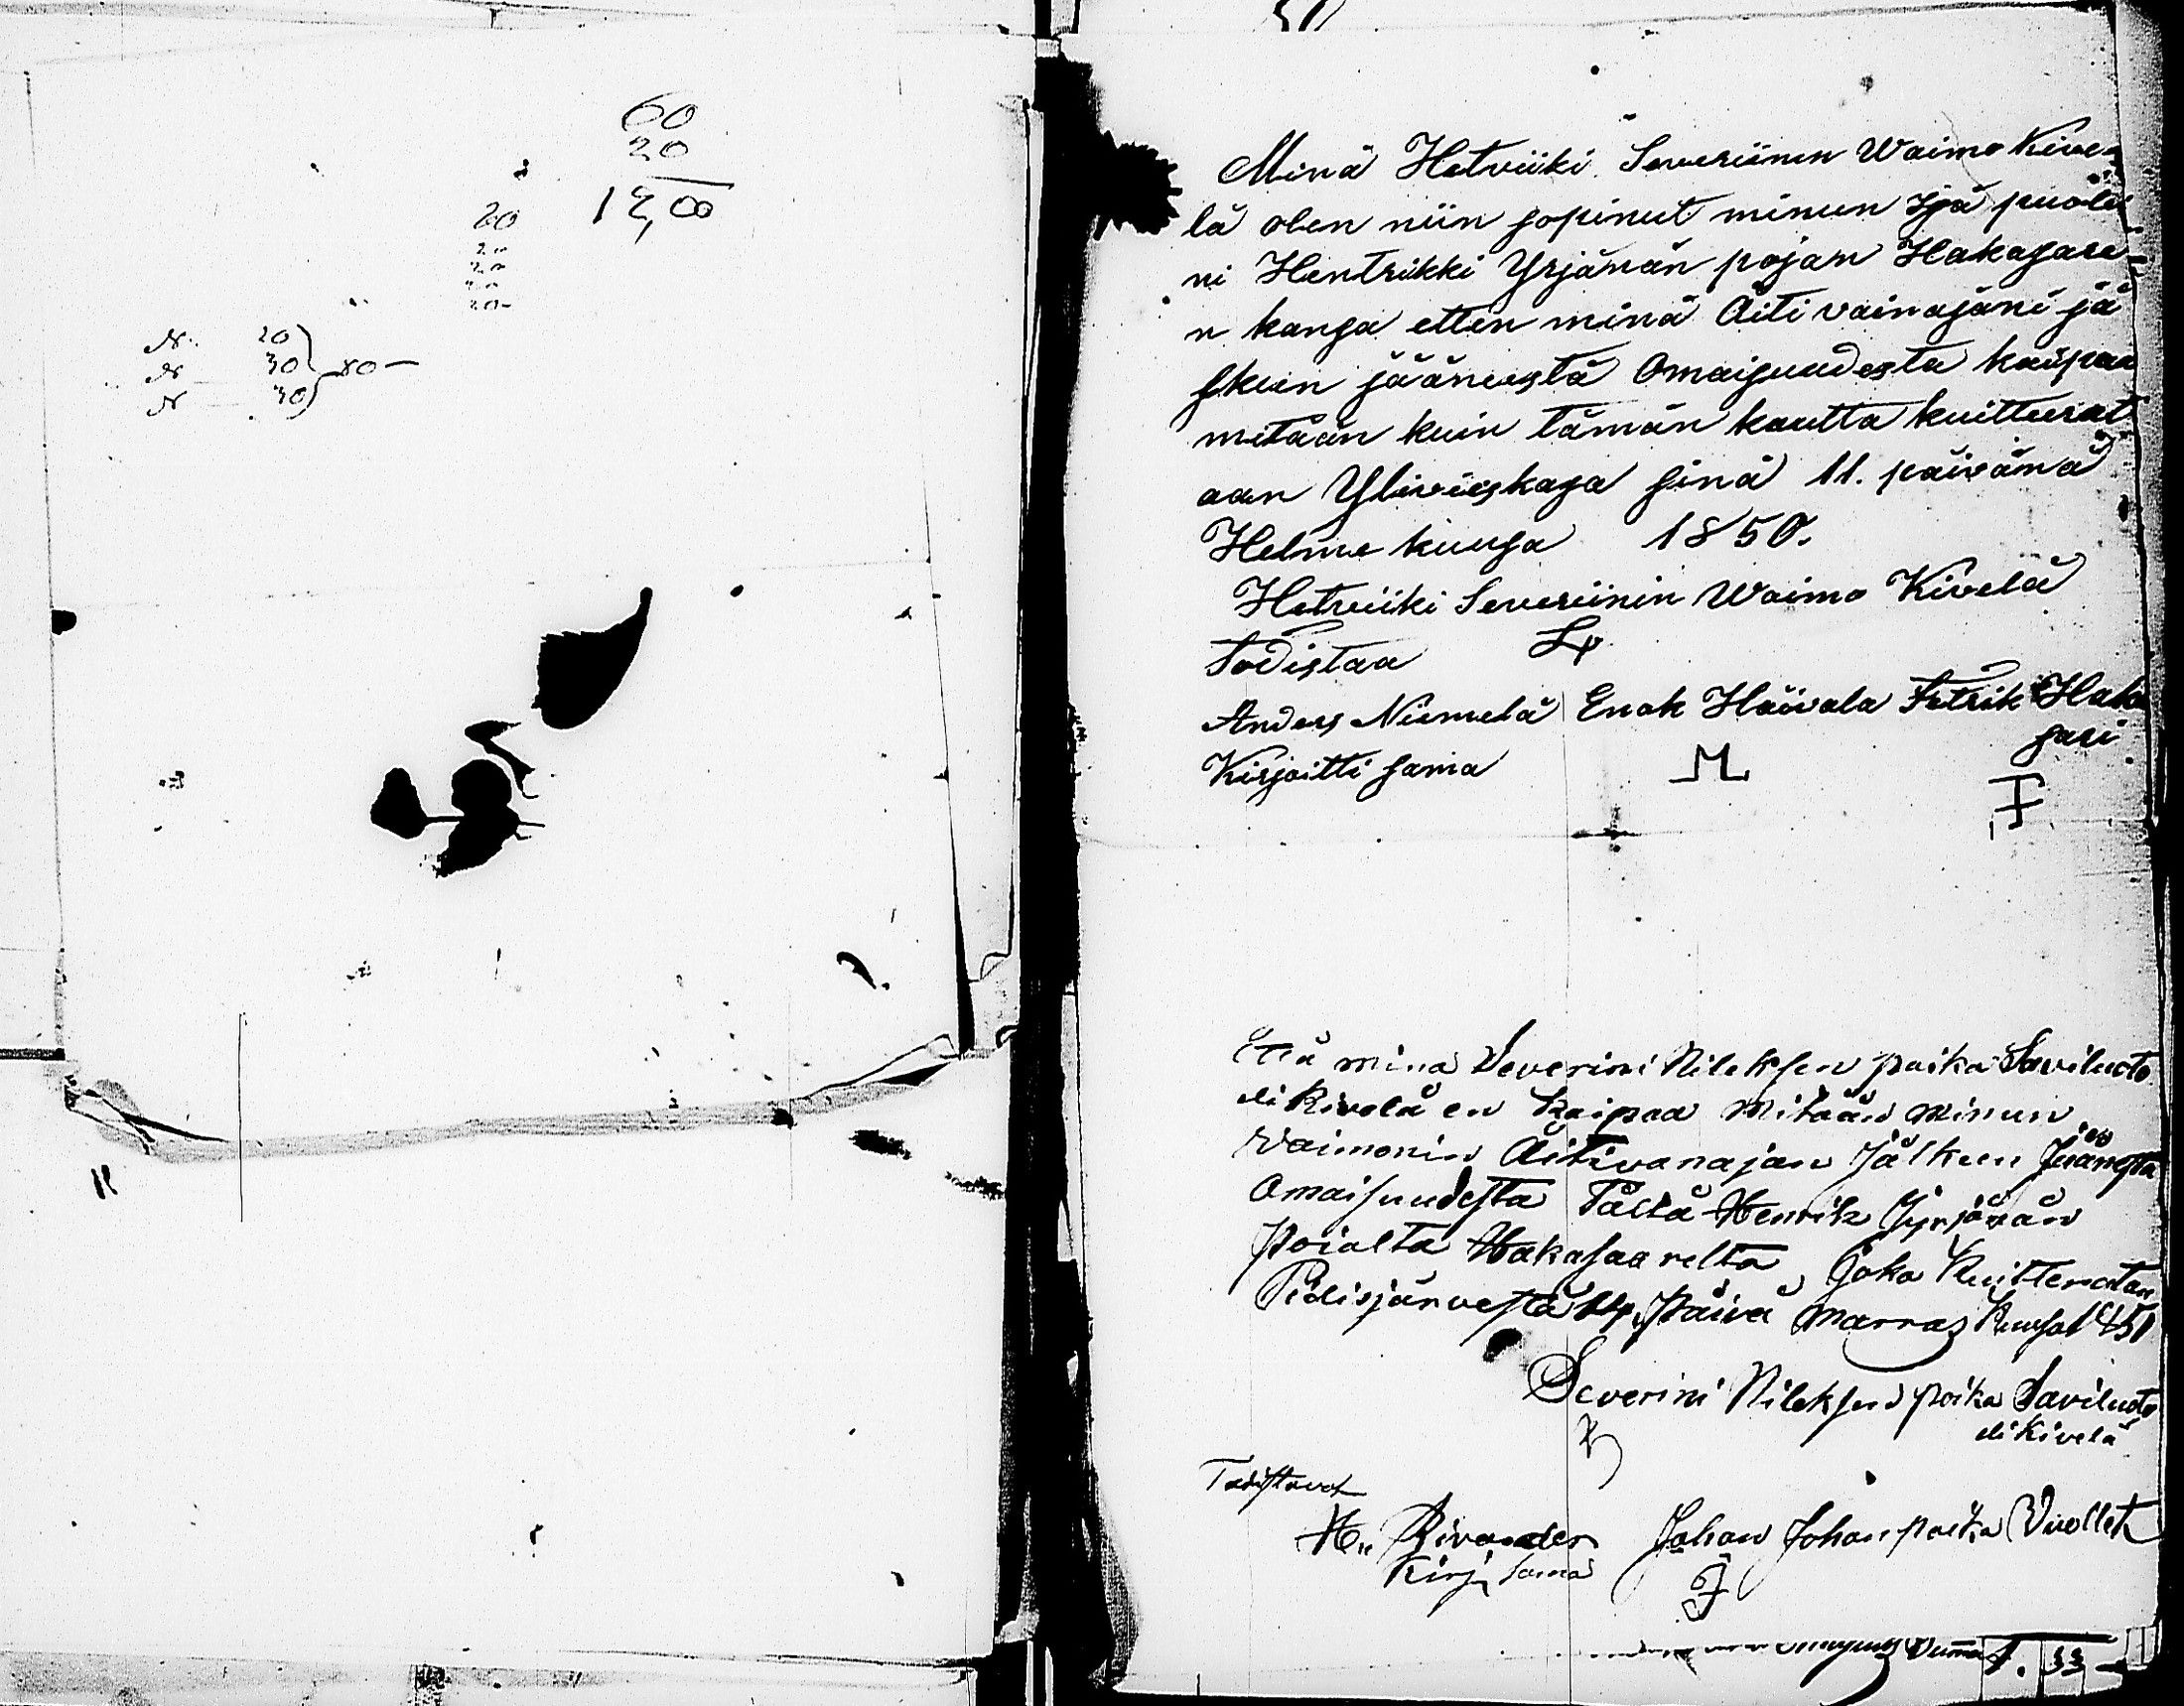 60
20
12,00
20
20
20
20
20-
N. 20
N 30 80 —
N 30
Minä Hetviiki Severiinin Waimo Kive-
lä olen niin sopinut minun Isä puole
ni Hentrikki Yrjämän pojan Hakasare-
n kansa etten minä Äiti vainajani jä
lkeen jääneestä Omaisuudesta kaipaa
mitään kuin tämän kautta kuitterat
aan Ylivieskasa sinä 11. päivänä
Helme kuusa 1850.
Hetviiki Severiinin Waimo Kivelä
Todistaa
Anders Niemelä Enok Häivala Fetrik Haka
sari
Kirjoitti sama
Että mina Severini Nileksen poika Saviluoto
eli Kivelä en kaipaa mitään minun
Vaimonin Äitivanajan Jälkeen Jäänestä
Omaisuudesta Tältä Henrik Yrjänän
Poialta Hakasaarelta, Joka Kuitteratan
Pidisjärvestä 14 Päivä marras Kuusa 1851
Severini Nileksen poika Saviluoto
eli Kivelä
Todistavat
H. Rivander Johan Johan poika Vuollet
Kirj. Sama
Summa 1. 33